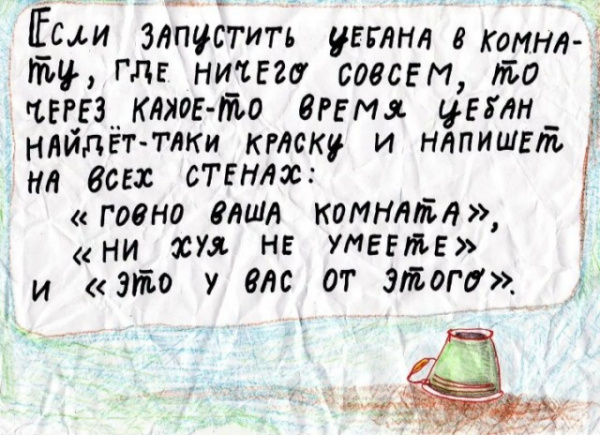 Если запустить уебана в комна-
ту, где ничего совсем, то
через какое-то время уебан
найдёт-таки краску и напишет
на всех стенах:
« говно ваша комната»,
« ни хуя не умеете»
и « это у вас от этого».